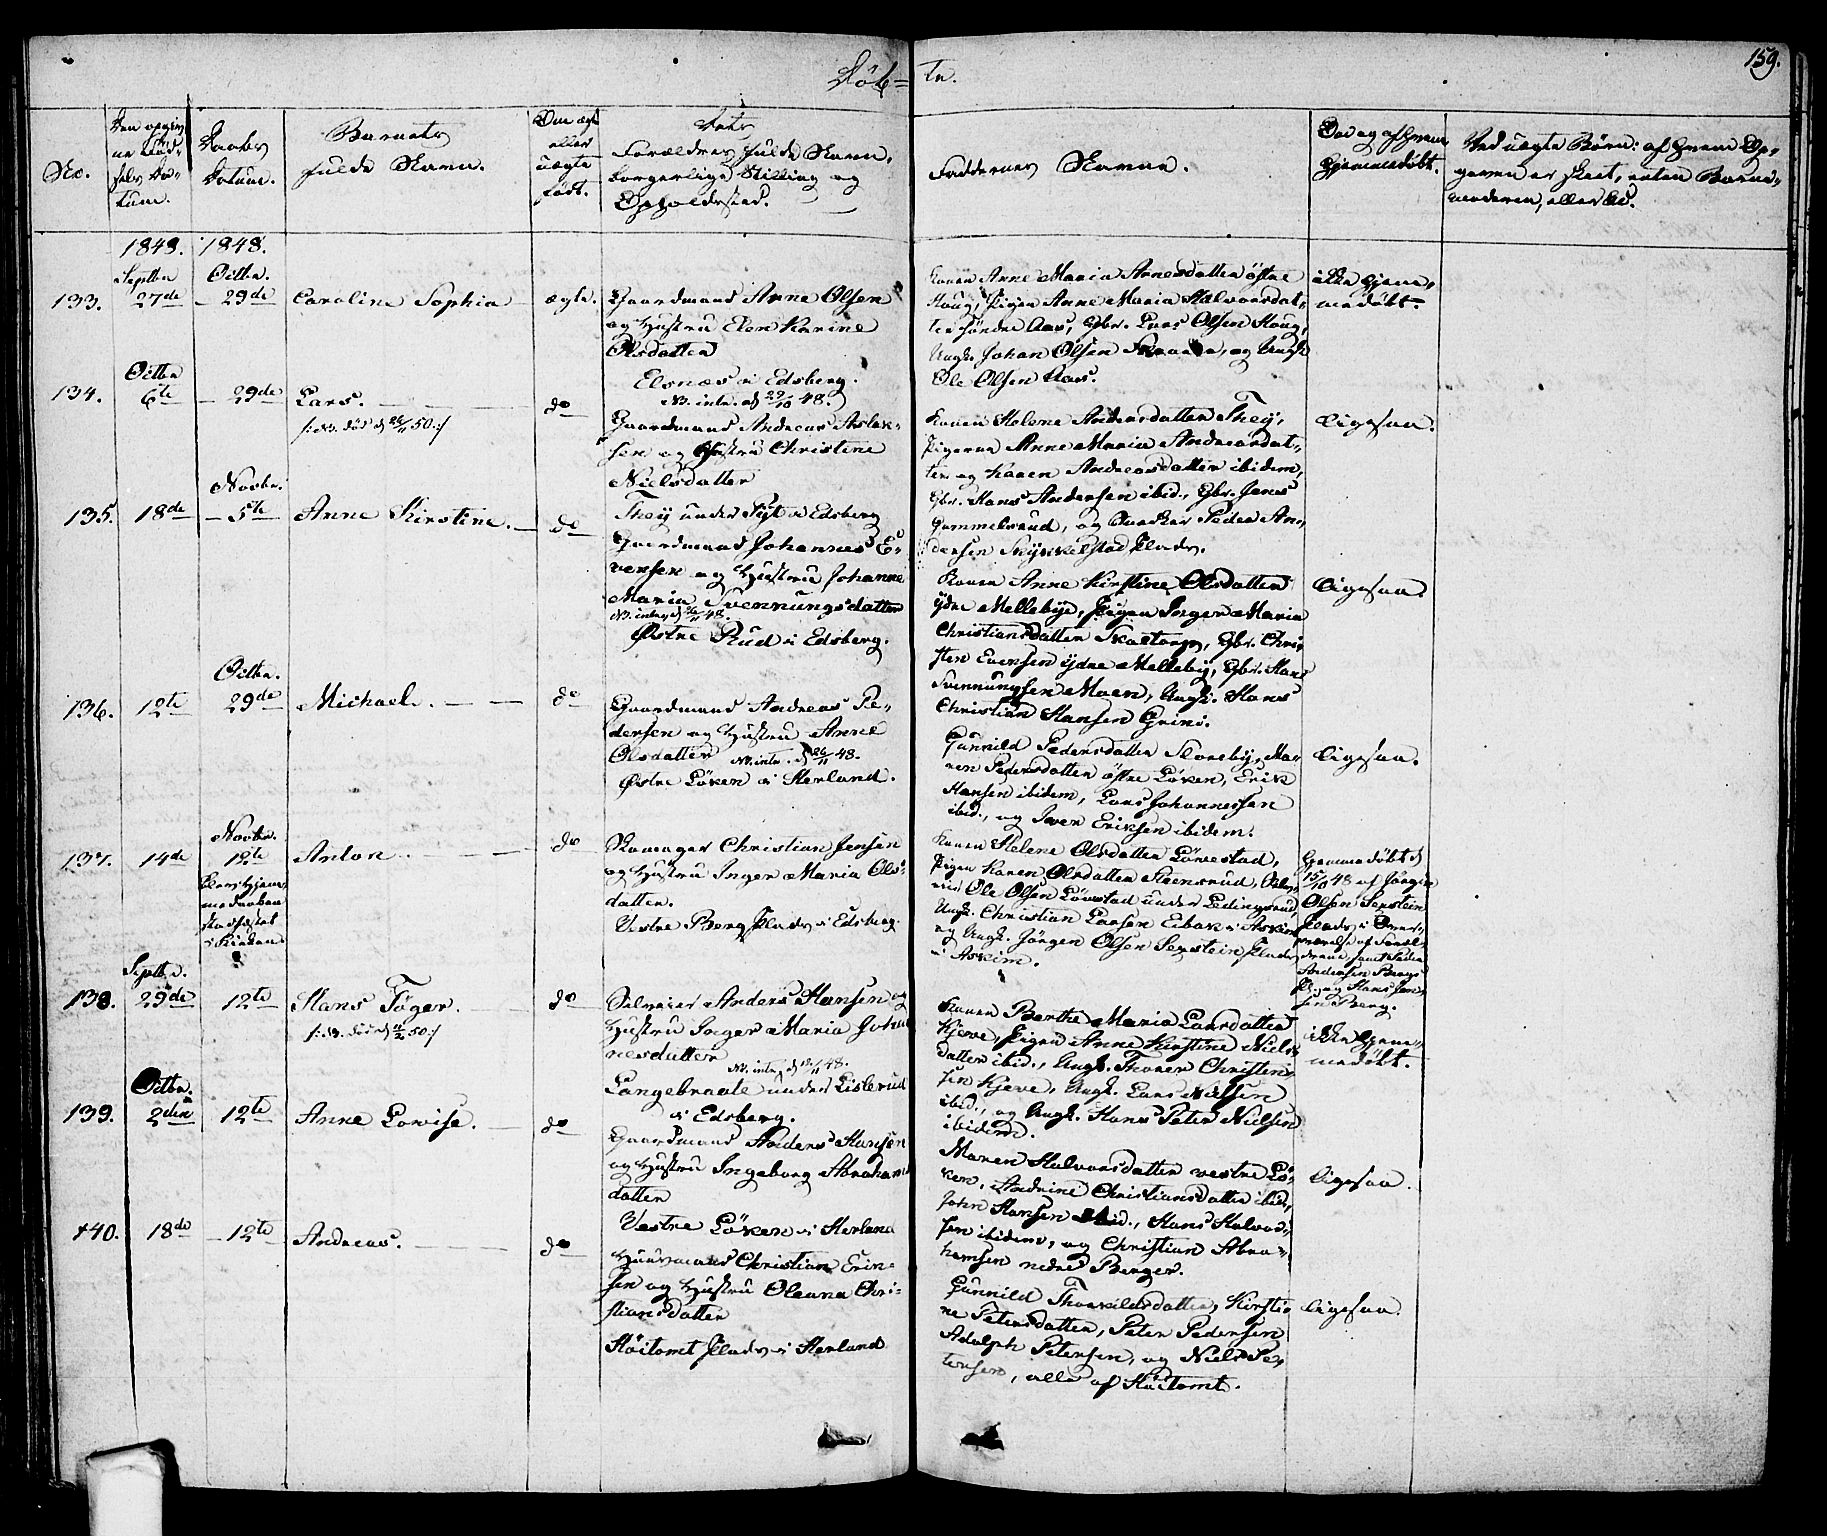 Döb-
te.
159.
No.
Barnets
fulde Navn.
Daabs
Datum.
Om ægte
eller
uægte
født.
Forældres fulde Navn,
borgerlige Stilling og
Opholdssted.
Faddernes Navne.
1848. 1848.
133.
Septbr
27de
Octbr.
29de
Caroline Sophia
ægte.
Gaardmand Anne Olsen
og Hustru Elen Karine
Olsdatter
Elsnæs i Edsberg.
NB. intr. d 29/10 48.
Konen Anne Maria Arnesdatter östre
Houg, Pigen Anne Maria Halvorsdat-
ter söndre Aas, Gbr. Lars Olsen Houg,
Ungk. Johan Olsen, og Ungk
Ole Olsen Aas.
ikke hjem-
medøbt.
134.
Octbr
6te
29de
Lars.
do
Gaardmand Andreas Aslak-
sen og Hustru Christine
Nielsdatter
They under Syt i Edsberg
Konen Helene Andersdatter They,
Pigerne Anne Maria Andreasdat-
ter og Karen Andreasdatter ibidem,
Gbr. Hans Andersen ibid., Gbr. Jens
Gammelsrud, og Peder An-
dersen Plads.
Ligesaa.
135.
18de
Novbr.
5te
Anne Kirstine.
do
Gaardmand Johannes E-
vensen og Hustru Johanne
Maria Svennungsdatter
Østre Rud i Edsberg.
Konen Anne Kirstine Olsdatter
ydre Mellebye, Pigen Inger Maria
Christiansdatter Skoltorp, Gbr. Chri-
sten Evensen ydre Melleby, Gbr. Hans
Svennungsen Moen, Ungk. Hans
Christian Hansen Grini.
Ligesaa.
136.
12te
Octbr.
29de
Michael.
do
Gaardmand Andreas Pe-
dersen og Hustru Anne
Olsdatter
NB. intr. d 26/11 48.
Østre Löken i Herland.
Gunnild Pedersdatter Sloreby, Ma-
ren Pedersdatter östre Löken, Erik
Hansen ibidem, Lars Johannessen
ibid., og Iver Eriksen ibidem.
Ligesaa.
137.
14de
Novbr.
12te
Anton.
do
Skomager Christian Jensen
og Hustru Inger Maria Ols-
datter.
Vestre Berg Plads i Edsberg.
Konen Helene Olsdatter Löwestad,
Pigen Karen Olsdatter Steensrud,
Ole Olsen Löwstad under Ledingsrud,
Ungk. Christian Larsen Eibak i Askim
og Ungk. Jörgen Olsen Sexstein Plads
i Askim.
Hjemmedøbt d
15/10 48 af Jörgen
Olsen Sexstein
Plads i Over-
værelse af
samt Peder
Andersen Bergs
Pl. og Hans Jen-
sen Berg.
138.
Septbr.
29de
12te
Hans Töger.
do
Selveier Anders Hansen og
Hustru Inger Maria Johan
nesdatter
NB. intr. d 12/11 48.
Langebraate under Lislerud
i Edsberg.
Konen Berthe Maria Larsdatter
Kjeve, Pigen Anne Kirstine Niels-
datter ibid., Ungk. Thorer Christen-
sen Kjeve, Ungk. Lars Nielsen
ibid., og Ungk. Hans Peter Nielsen
ibidem.
ikke hjem-
medøbt.
139.
Octbr.
2den
12te
Anne Lovise.
do
Gaardmand Anders Hansen
og Hustru Ingeborg Abrahams
datter
Vestre Löken i Herland
Maren Halvorsdatter vestre Lö-
ken, Andrine Christiansdatter ibid,
John Hansen ibid., Hans Halvor-
sen ibidem, og Christian Abra-
hamsen nedre Berger.
Ligesaa.
140.
18de
12te
Andreas.
do
Huusmand Christian Erik-
sen og Hustru Oleana Chri-
stiansdatter
Höitomt Plads i Herland
Gunnild Thorkildsdatter, Kirsti-
ne Petersdatter, Peter Pedersen
Adolph Petersen, og Niels Pe-
tersen, alle af Höitomt.
Ligesaa.